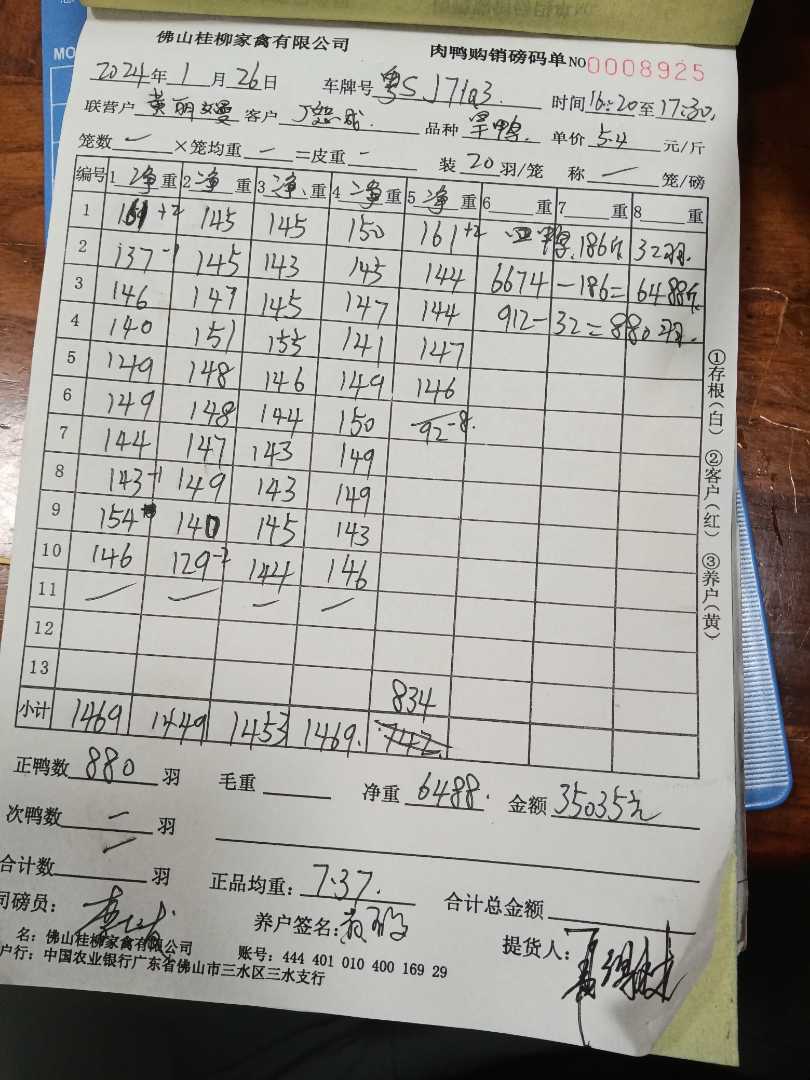 佛山桂柳家禽有限公司 肉鸭购销磅码单 NO0008925
2024年1月26日 车牌号 粤SJ71Q3 时间16:20至17:30
联营户 黄丽嫚 客户 品种 旱鸭 单价 5.4 元/斤
笼数 一 ×笼均重 一 =皮重 一 装 20 羽/笼 称 一 笼/磅
编号 1 净 重 2 净 重 3 净 重 4 净 重 5 净 重 6 重 7 重 8 重
1 161+2 145 145 150 161+2 186斤 32羽
2 137-1 145 143 145 144 6674 -186= 6488斤
3 146 147 145 147 144 912- 32= 880羽
4 140 151 155 141 147
5 149 148 146 149 146
6 149 148 144 150 92-8
7 144 147 143 149
8 143+1 149 143 149
9 154 140 145 143
10 146 129-2 144 146
11 — — — —
12
13 834
小计 1469 1449 1453 1469 742
正鸭数 880 羽 毛重 净重 6488 金额 35035元
次鸭数 一 羽
合计数 一 羽 正品均重: 7.37 合计总金额
司磅员: 养户签名: 提货人:
名: 佛山桂柳家禽有限公司 账号: 444 401 010 400 169 29
户行: 中国农业银行广东省佛山市三水区三水支行
①存根(白) ②客户(红) ③养户(黄)